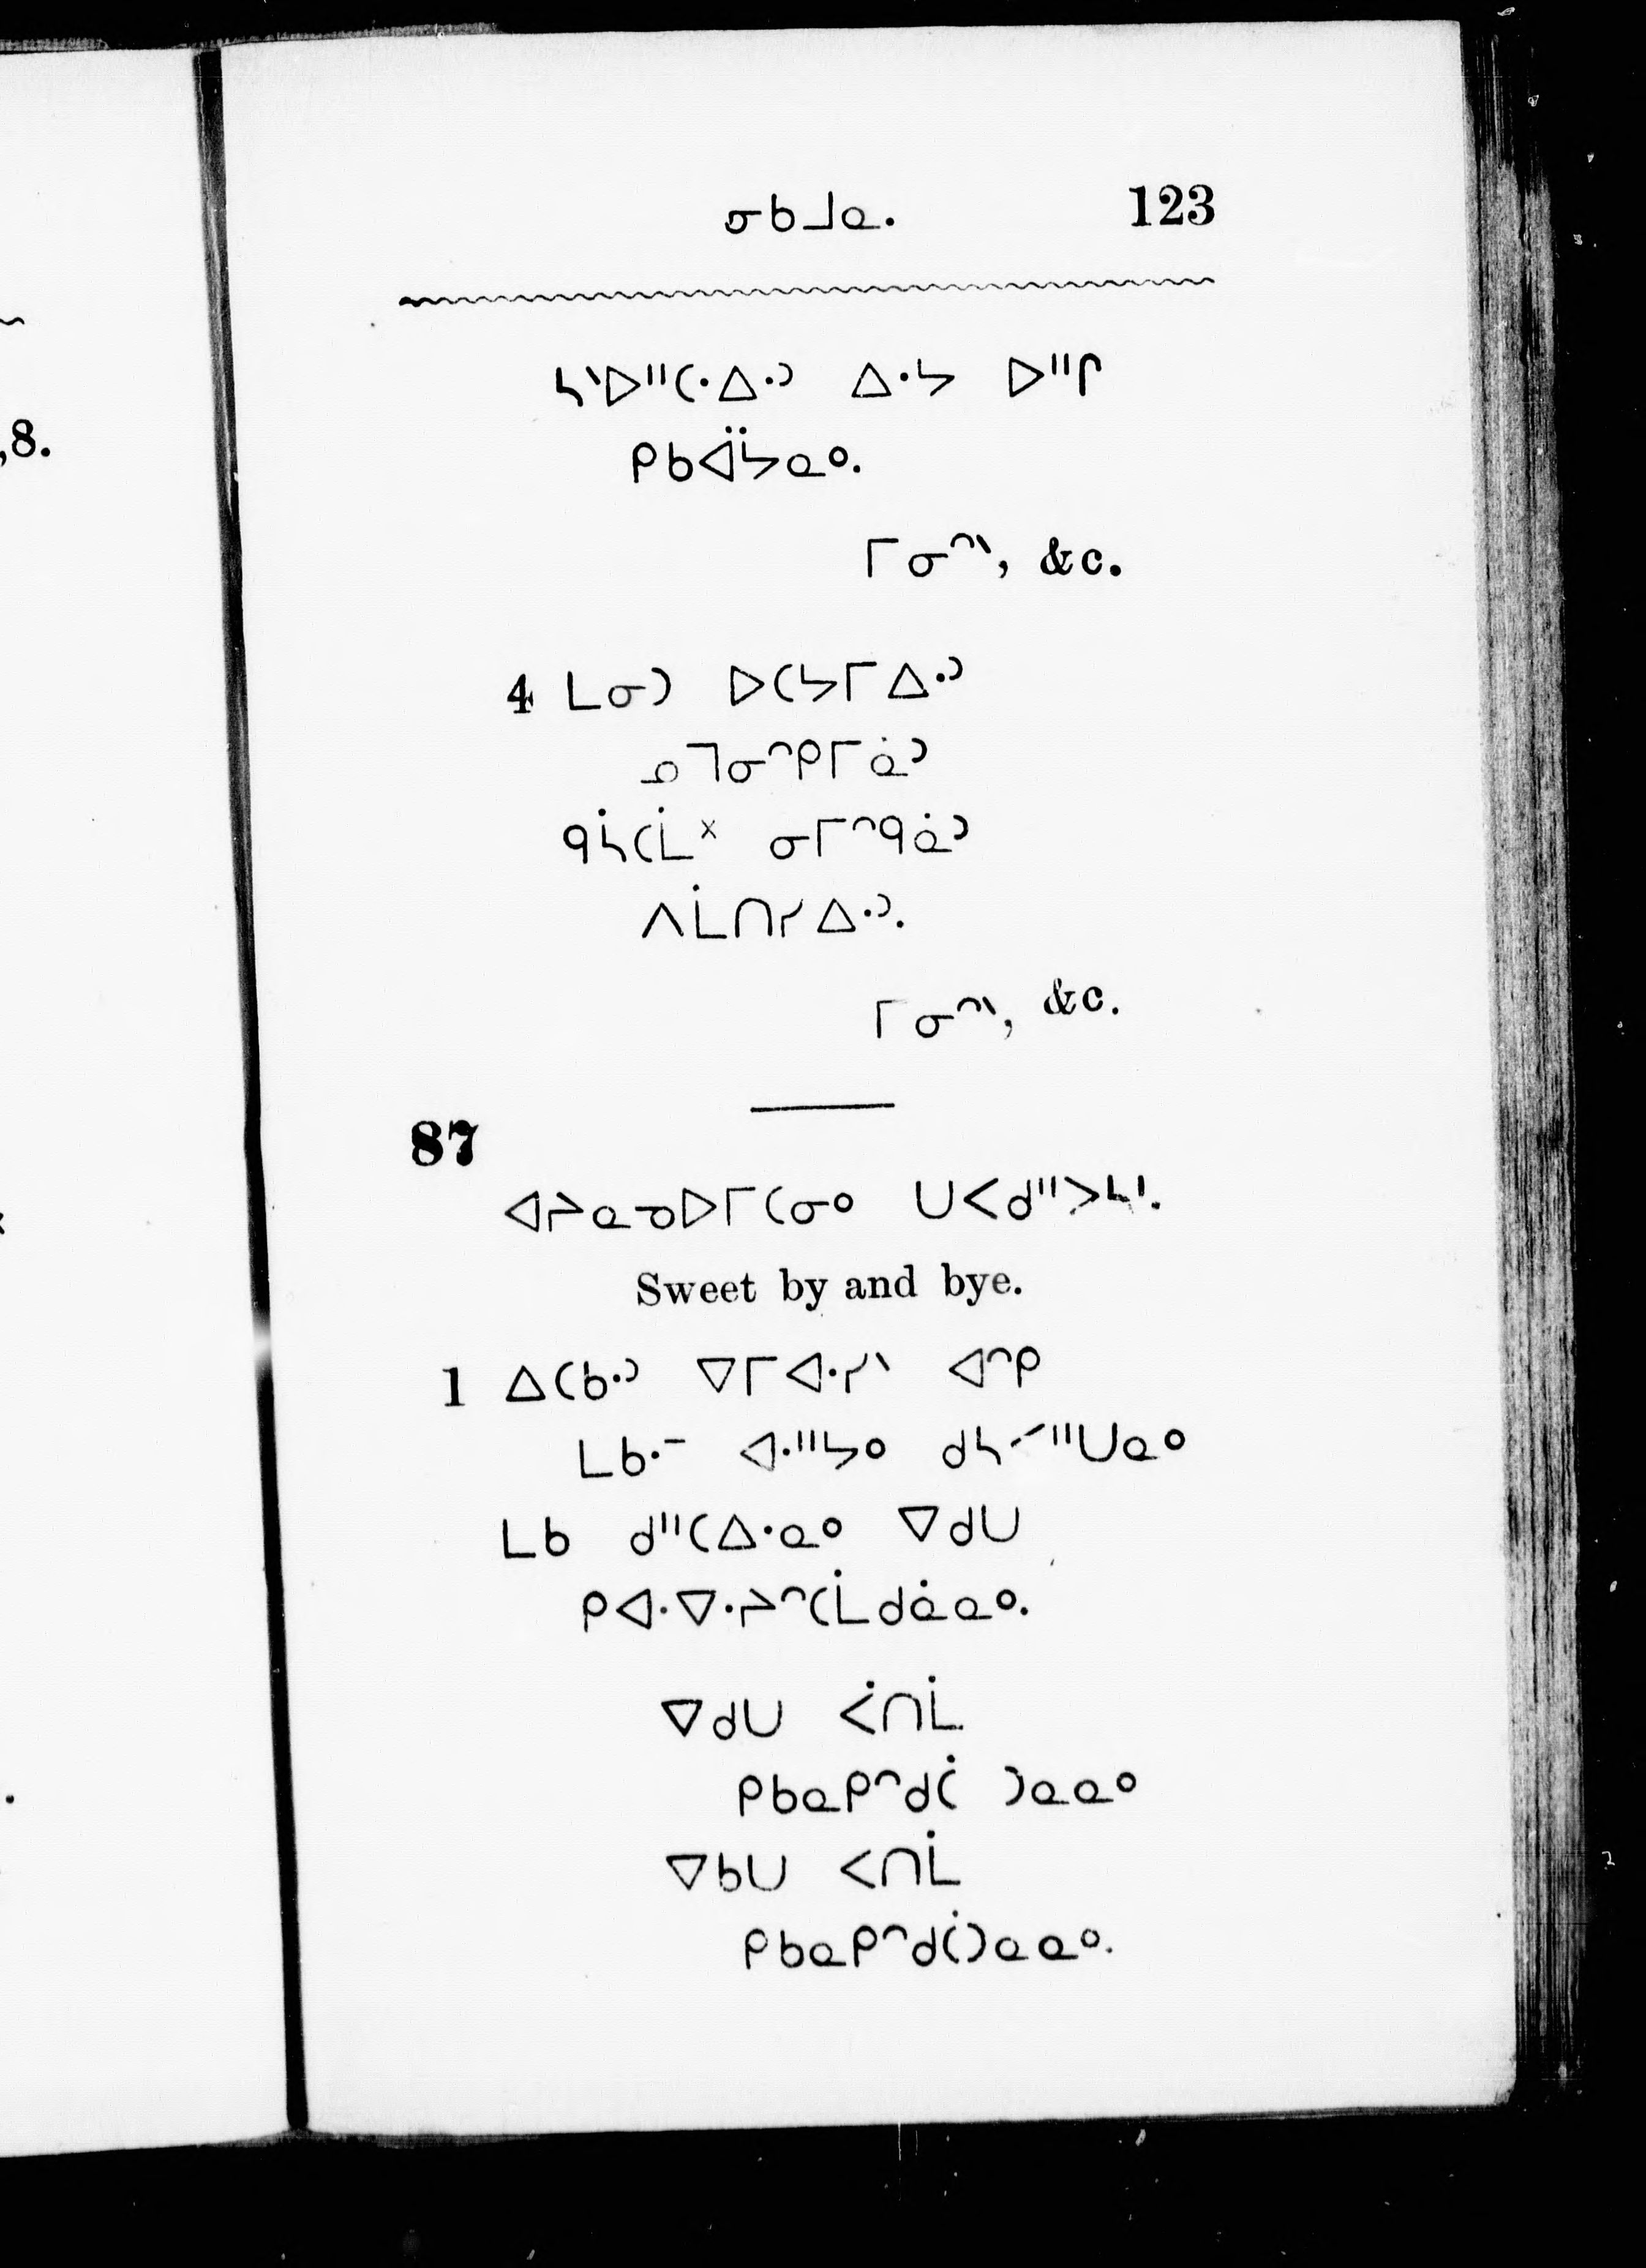 ᓂᑲᒧᓇ. 123
ᓴᐠᐅᐦᑕᐧᐃᐧᐣ ᐃᐧᔭ ᐅᐦᒋ
ᑭᑲᐋᔭᓇᐤ.
ᒥᓂᐢᐠ, &c.
4 ᒪᓂᑐ ᐅᑕᔭᒥᐃᐧᐣ
ᓄᒣᓂᐢᑭᒥᓈᐣ
ᑫᓵᑕᒫᕽ ᓂᒥᐢᑫᓈᐣ
ᐱᒫᑎᓯᐃᐧᐣ.
ᒥᓂᐢᐠ, &c.
87
ᐊᔨᓇᓀᐅᒥᑕᓂᐤ ᑌᐸᑯᐦᐳᓴᑊ.
Sweet by and bye.
1 ᐃᑕᑲᐧᐣ ᐁᒥᐊᐧᓯᐠ ᐊᐢᑭ
ᒪᑲᐧᐨ ᐊᐧᐦᔭᐤ ᑯᓴᐟᐦᑌᓇᐤ
ᒪᑲ ᑯᐦᑕᐃᐧᓇᐤ ᐁᑯᑌ
ᑭᐊᐧᐁᐧᔨᐢᑕᒫᑯᓈᓇᐤ.
ᐁᑯᑌ ᐹᑎᒫ
ᑭᑲᓇᑭᐢᑯᑖ ᑐᓇᓇᐤ
ᐁᑲᑌ ᐸᑎᒫ
ᑭᑲᓇᑭᐢᑯᑖᑐᓇᓇᐤ.